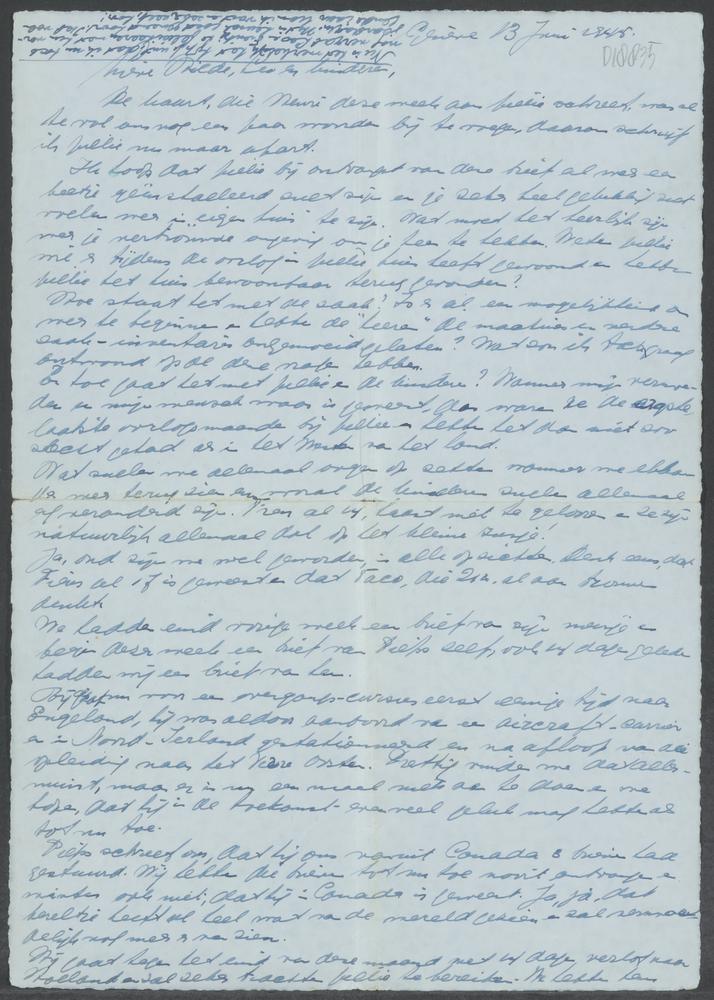 Genève 13 Juni 1945.
D18835
Lieve Hilde, Leo en kinderen,
De kaart, die Henri deze week aan jullie schreef, was al
te vol om nog een paar woorden bij te voegen, daarom schrijf
ik jullie nu maar apart.
Ik hoop dat jullie bij ontvangst van deze brief al weer een
beetje geïnstalleerd zult zijn en je zeker heel gelukkig zult
voelen weer in eigen huis te zijn. Wat moet het heerlijk zijn
weer je vertrouwde omgeving om je heen te hebben. Weten jullie
wie er tijdens de oorlog in jullie huis heeft gewoond en hebben
jullie het huis bewoonbaar terug gevonden?
Hoe staat het met de zaak? Is er al een mogelijkheid om
weer te beginnen en hebben de "heeren" de machines en verdere
zaak-inventaris ongemoeid gelaten? Wat zou ik heel graag
antwoord op al deze vragen hebben.
En hoe gaat het met jullie en de kinderen? Wanneer mijn
en mijn mensch maar is geweest, dan waren ze de ergste
laatste oorlogsmaanden bij jullie en hebben het dan niet zoo
slecht gehad als in het Westen van het land.
Wat zullen we allemaal ongeduldig zijn wanneer we elkaar
weer terug zien en vooral de kinderen zullen allemaal
erg veranderd zijn. al 14, haast niet te gelooven en ze zijn
natuurlijk allemaal dol op het kleine zusje!
Ja, oud zijn we wel geworden, in alle opzichten. Denk eens, dat
al 17 is geweest en dat Taco, die 20 is, al aan trouwen
denkt.
We hadden eind vorige week een brief van zijn meisje en
begin deze week een brief van Pieps zelf, ook 14 dagen geleden
hadden wij een brief van hen.
Hij gaat nu voor een overgangs-cursus eerst eenige tijd naar
Engeland, hij was aldoor aan boord van een aircraft-carrier
en in Noord-Ierland gestationneerd en na afloop van die
opleiding naar het Verre Oosten. Prettig vinden we dat aller-
minst, maar er is nu eenmaal niets aan te doen en we
hopen, dat hij in de toekomst evenveel geluk mag hebben als
tot nu toe.
Pieps schreef ons, dat hij ons vanuit Canada 3 brieven had
gestuurd. Wij hebben die brieven tot nu toe nooit ontvangen en
wisten ook niet, dat hij in Canada is geweest. Ja, ja, dat
kereltje heeft al heel wat van de wereld gezien en zal vermoe-
delijk nog meer er van zien.
Hij gaat tegen het eind van deze maand met 14 dagen verlof naar
Holland en zal zeker trachten jullie te bereiken. We hebben hem